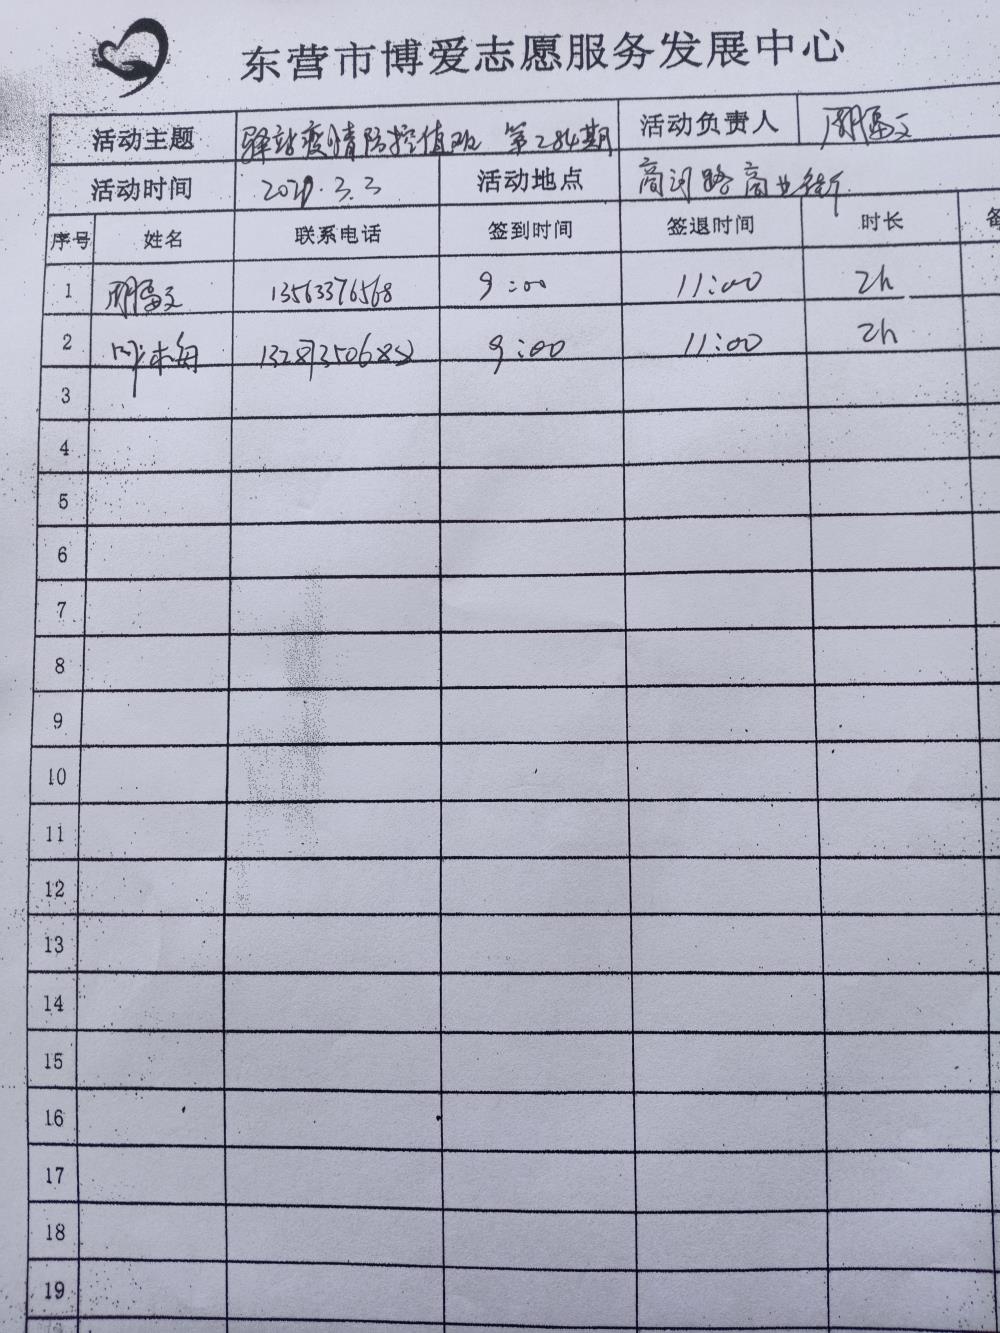 东营市博爱志愿服务发展中心
活动主题 驿站疫情防控值班 第284期 活动负责人
活动时间 2021.3.3 活动地点 商河路商业街
序号 姓名 联系电话 签到时间 签退时间 时长
1 13563376568 9:00 11:00 2h
2 9:00 11:00 2h
3
4
5
6
7
8
9
10
11
12
13
14
15
16
17
18
19